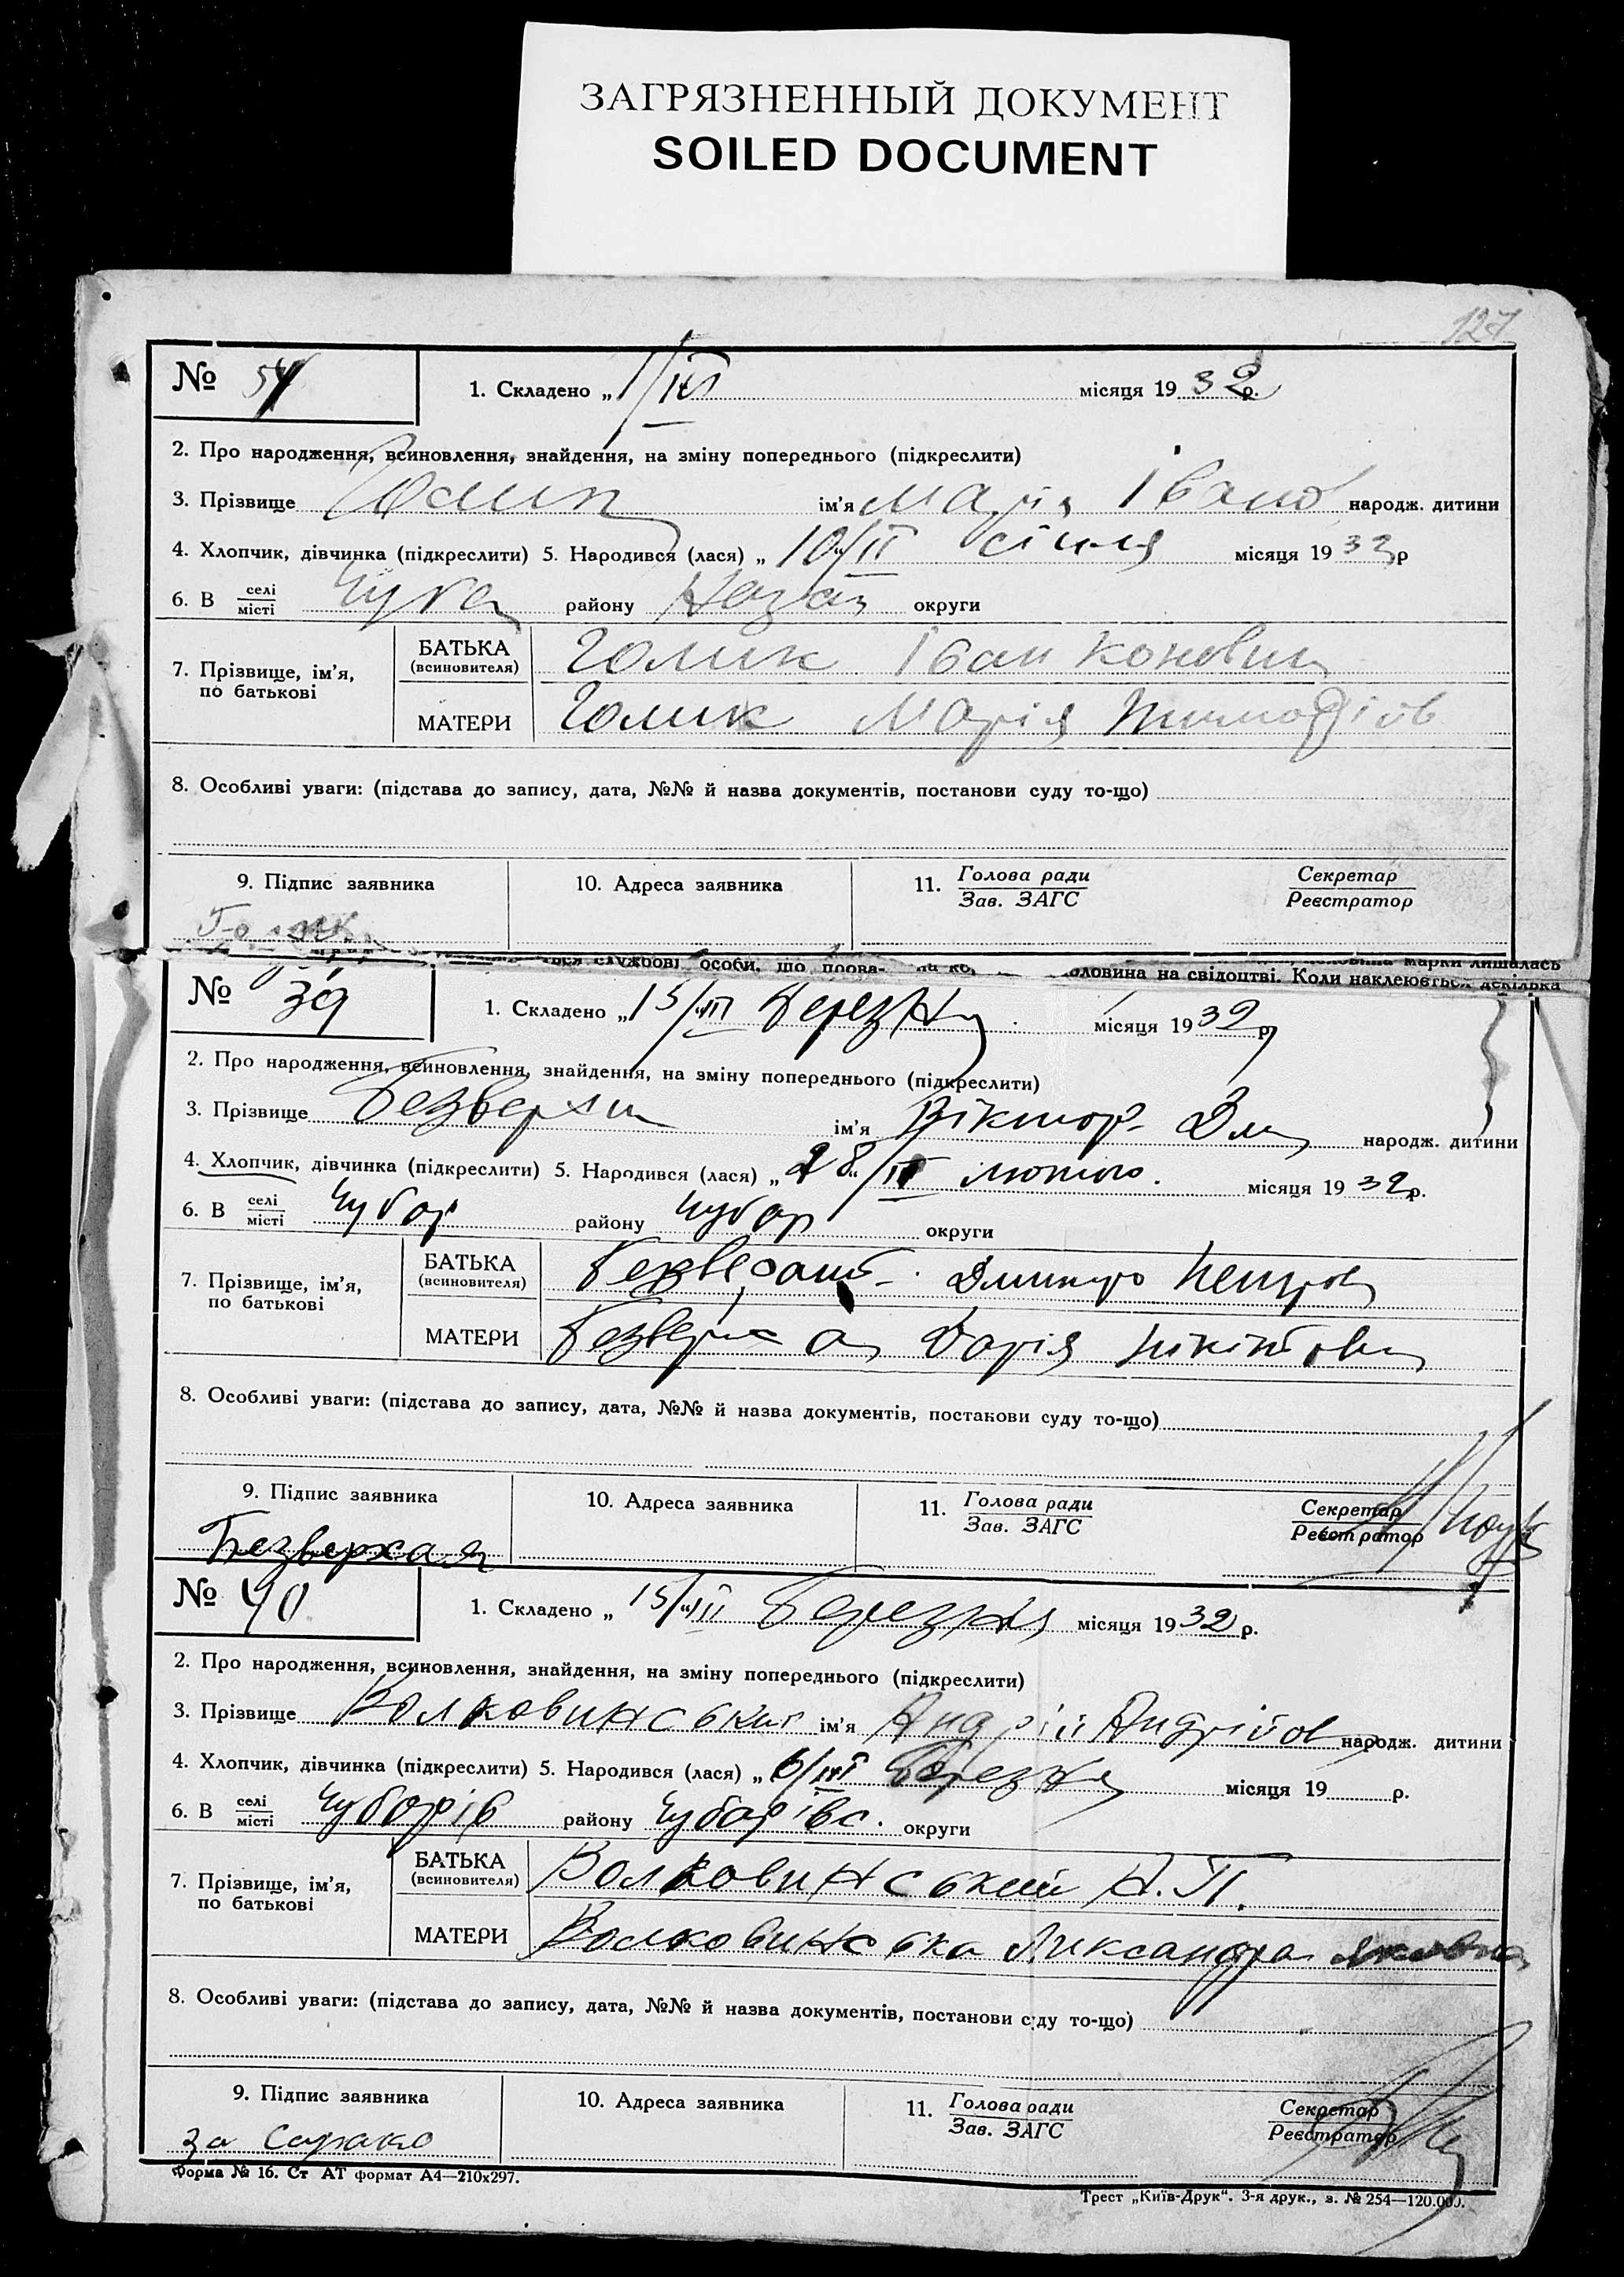 ЗАГРЯЗНЕННЫЙ ДОКУМЕНТ
SOILED DOCUMENT
127
№ 54
1. Складено „1/III місяця 1932р.
2. Про народження, всиновлення, знайдення, на зміну попереднього (підкреслити)
3. Прізвище Голик ім'я Марія Іванов народж. дитини
4. Хлопчик, дівчинка (підкреслити) 5. Народився (лася) „10/II місяця 1932р
6. В селі/місті району округи
7. Прізвище, ім'я, по батькові
БАТЬКА (всиновителя) Голик Іван
МАТЕРИ Голик Марія Тимофіів
8. Особливі уваги: (підстава до запису, дата, №№ й назва документів, постанови суду то-що)
9. Підпис заявника
10. Адреса заявника
11. Голова ради/Зав. ЗАГС
Секретар/Реєстратор
ться службові особи, що прова-
половина марки лишалась
половина на свідоцтві. Коли наклеюється декілька
№ 39
1. Складено „15/III Березня місяця 1932р
2. Про народження, всиновлення, знайдення, на зміну попереднього (підкреслити)
3. Прізвище Безверхи ім'я Віктор Дм народж. дитини
4. Хлопчик, дівчинка (підкреслити) 5. Народився (лася) „28/II лютого місяця 1932р.
6. В селі/місті Чубар району Чубар округи
7. Прізвище, ім'я, по батькові
БАТЬКА (всиновителя) Дмитро Петров
МАТЕРИ Безверха Дарія
8. Особливі уваги: (підстава до запису, дата, №№ й назва документів, постанови суду то-що)
9. Підпис заявника
10. Адреса заявника
11. Голова ради/Зав. ЗАГС
Секретар/Реєстратор
Безверхая
№ 40
1. Складено „15/III Березня місяця 1932р.
2. Про народження, всиновлення, знайдення, на зміну попереднього (підкреслити)
3. Прізвище Волковинський ім'я Андрій Андрійов народж. дитини
4. Хлопчик, дівчинка (підкреслити) 5. Народився (лася) „6/III Березня місяця 19 р.
6. В селі/місті Чубарів району Чубарівс. округи
7. Прізвище, ім'я, по батькові
БАТЬКА (всиновителя) Волковинський А. П.
МАТЕРИ Волковинська Ликсандра Яковна
8. Особливі уваги: (підстава до запису, дата, №№ й назва документів, постанови суду то-що)
9. Підпис заявника
10. Адреса заявника
11. Голова ради/Зав. ЗАГС
Секретар/Реєстратор
за
Форма № 16. Ст АТ формат А4—210x297.
Трест „Київ-Друк“. 3-я друк., з. № 254—120.000.